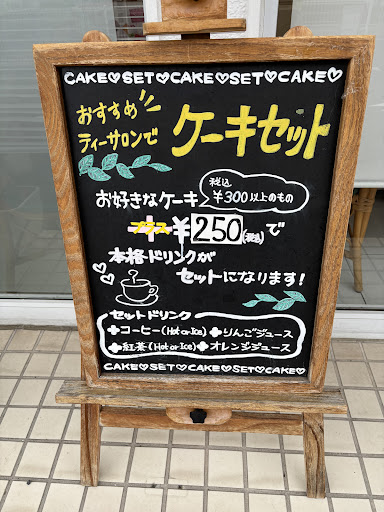 CAKE♡SET♡CAKE♡SET♡CAKE♡
おすすめ
ティーサロンで
ケーキセット
お好きなケーキ
税込
¥300以上のもの
プラス
+¥250(税込)で
本格ドリンクが
セットになります!
セットドリンク
✚コーヒー(Hot or Ice) ✚りんごジュース
✚紅茶(Hot or Ice) ✚オレンジジュース
CAKE♡SET♡CAKE♡SET♡CAKE♡